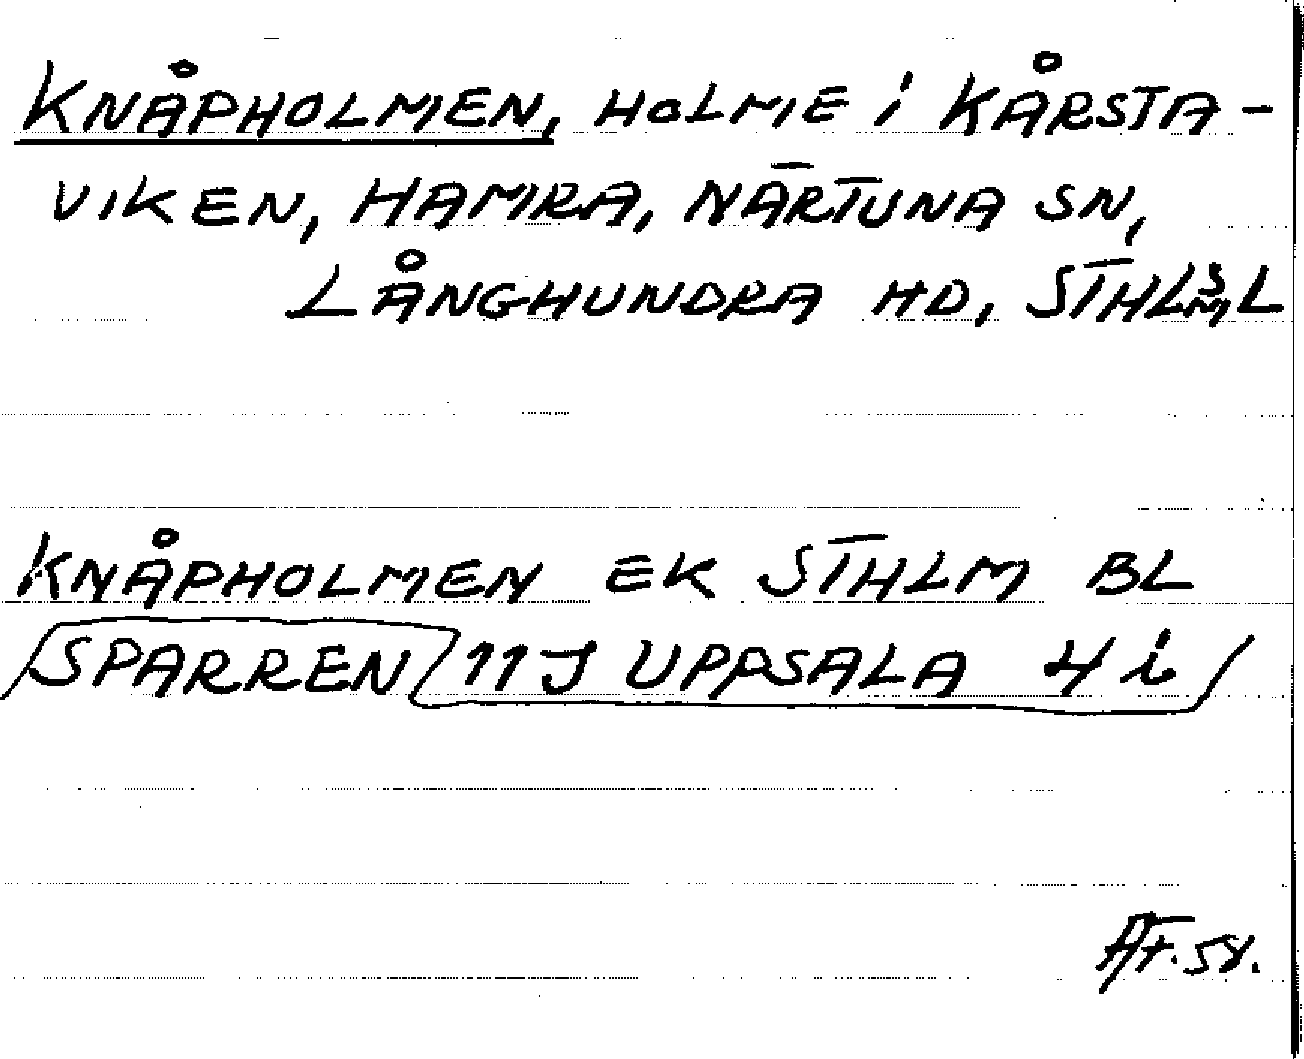 KNÅPHOLMEN, HOLME i KÅRSTA-
VIKEN, HAMRA, NÄRTUNA SN,
LÅNGHUNDRA HD, STHLMS L
KNÅPHOLMEN EK STHLM BL
SPARREN 11J UPPSALA 4 i